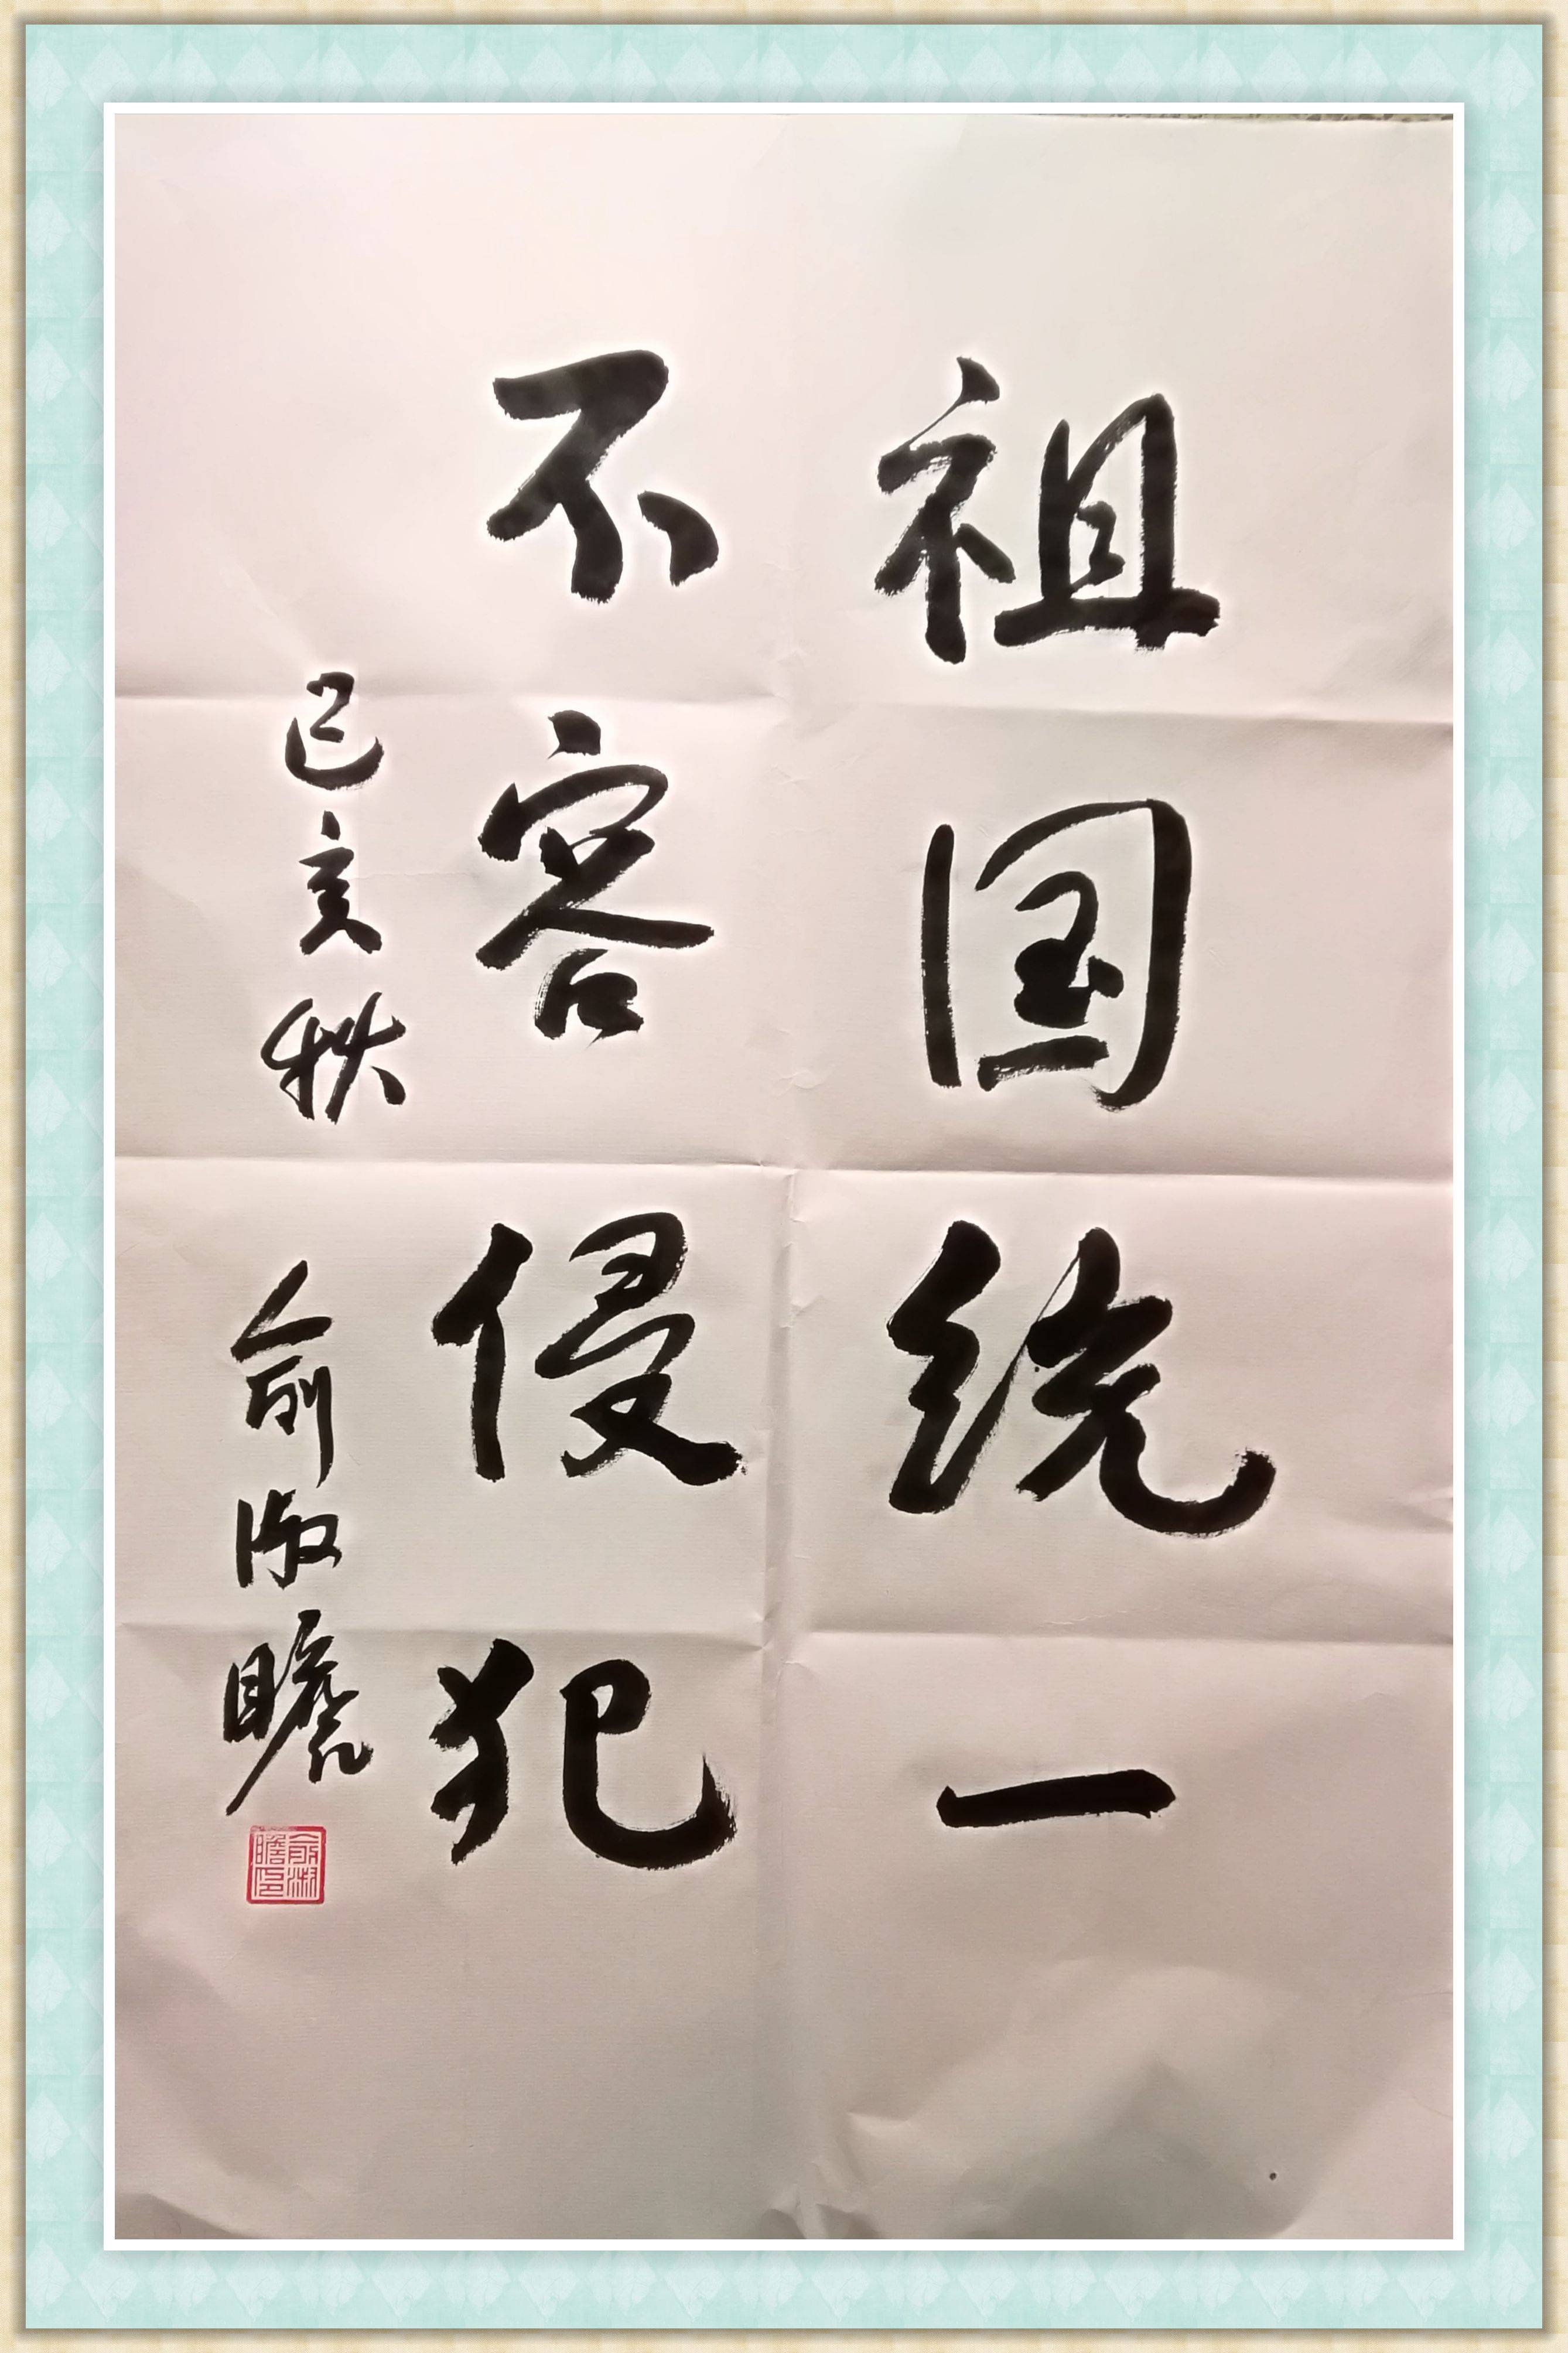 祖国统一
不容侵犯
己亥秋 俞淑瞻
俞淑瞻印